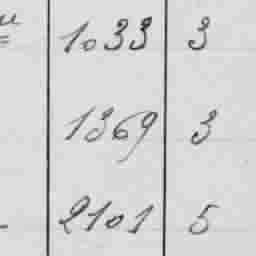 1033 3
1369 3
2101 5